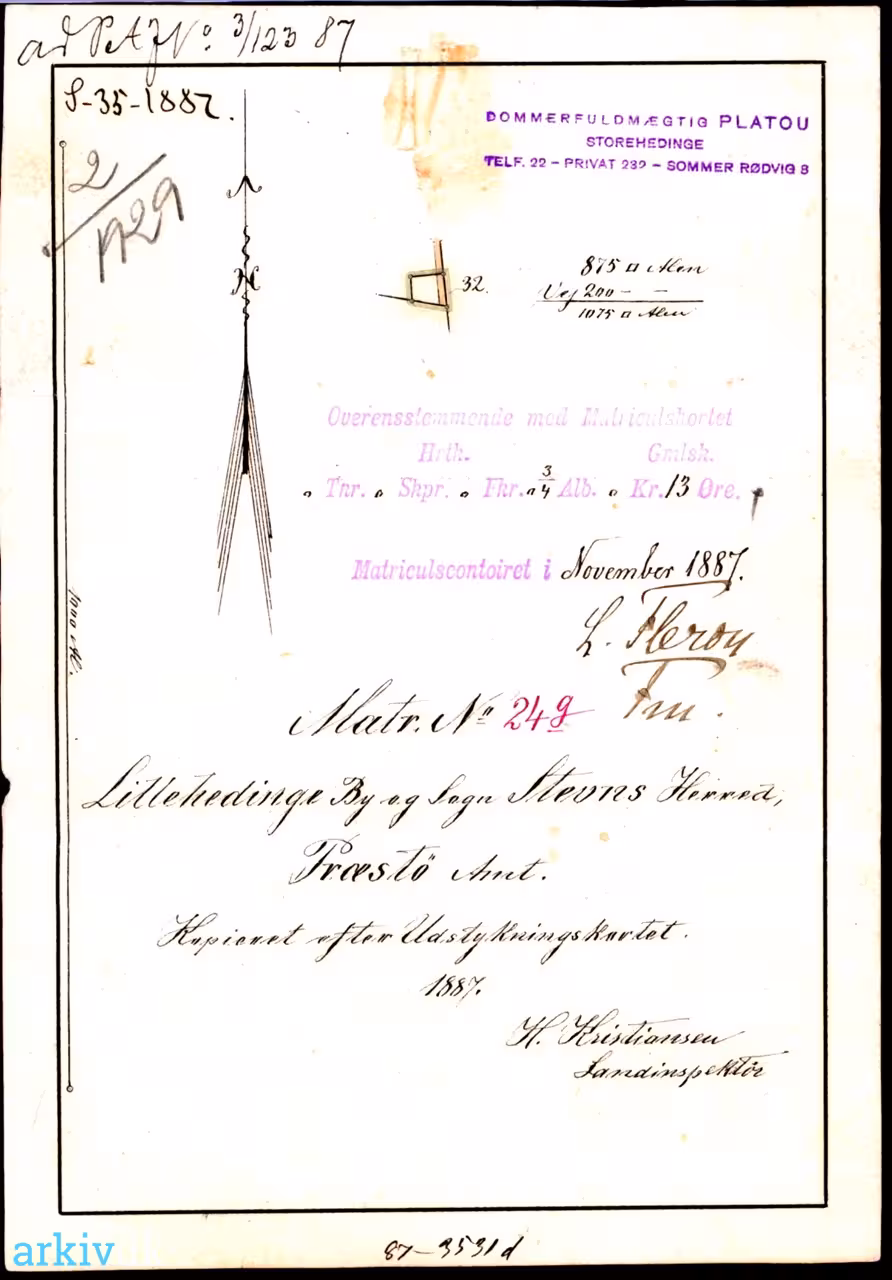 ad P.A.J.No. 3/123 87
S-35-1887.
DOMMERFULDMÆGTIG PLATOU
STOREHEDINGE
TELF. 22 – PRIVAT 232 – SOMMER RØDVIG 8
2/1929
N
32.
875 □ Alen
Vej 200 – –
1075 □ Alen
Overensstemmende med Matriculskortet
Hrtk. Gmlsk.
" Tnr. " Skpr. " Fkr. " 3/4 Alb. " Kr. 13 Øre.
Matriculscontoiret i November 1887.
L. Fleron
Fm.
1000 Al.
Matr. No 24g
Lillehedinge By og Sogn Stevns Herred,
Præstö Amt.
Kopieret efter Udstykningskortet.
1887.
H. Kristiansen
Landinspektör
87-3531d
arkiv.dk